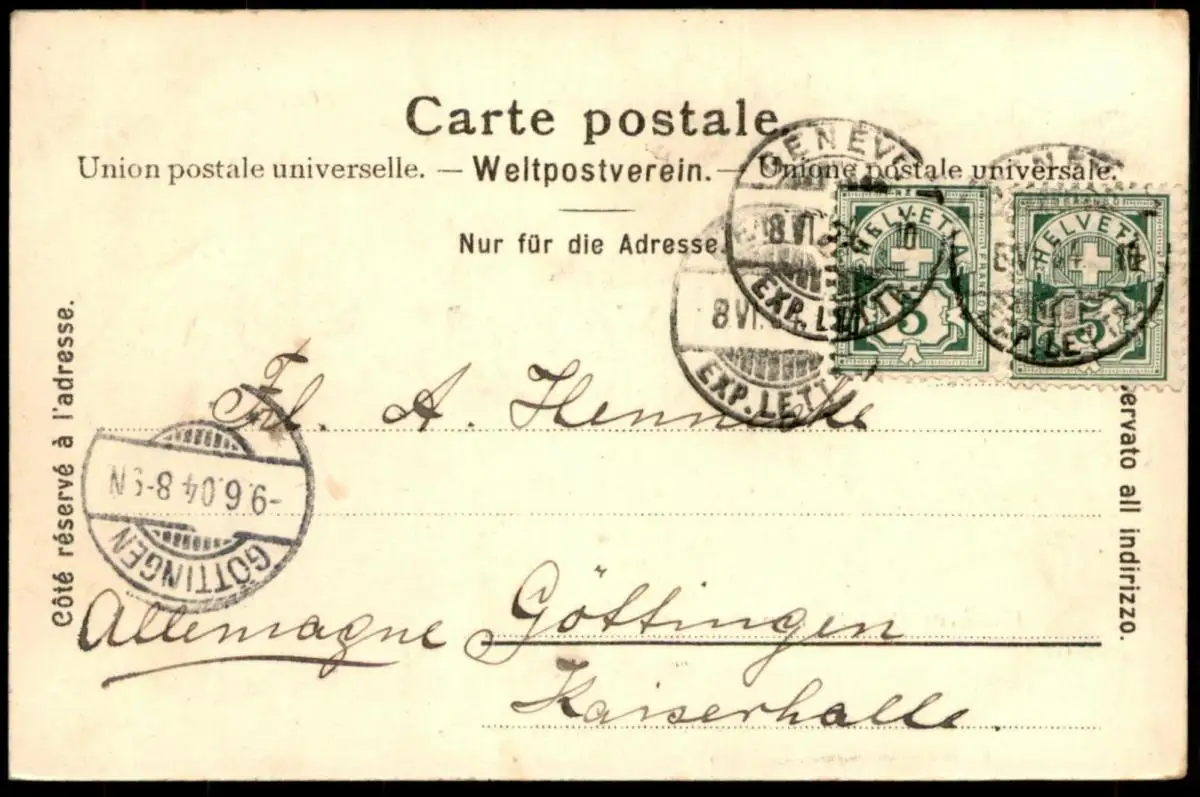 Carte postale.
Union postale universelle. — Weltpostverein. — Unione postale universale.
Nur für die Adresse.
Côté réservé à l'adresse.
ervato all indirizzo.
GENÈVE
8.VI.
10
EXP. LETT.
HELVETIA
FRANCO
5
GENÈVE
10
EXP. LETTR.
HELVETIA
FRANCO
5
8.VI.
EXP. LETT
Frl. A. Hennecke
-9.6.04 8-9N
GÖTTINGEN
Allemagne Göttingen
Kaiserhalle.